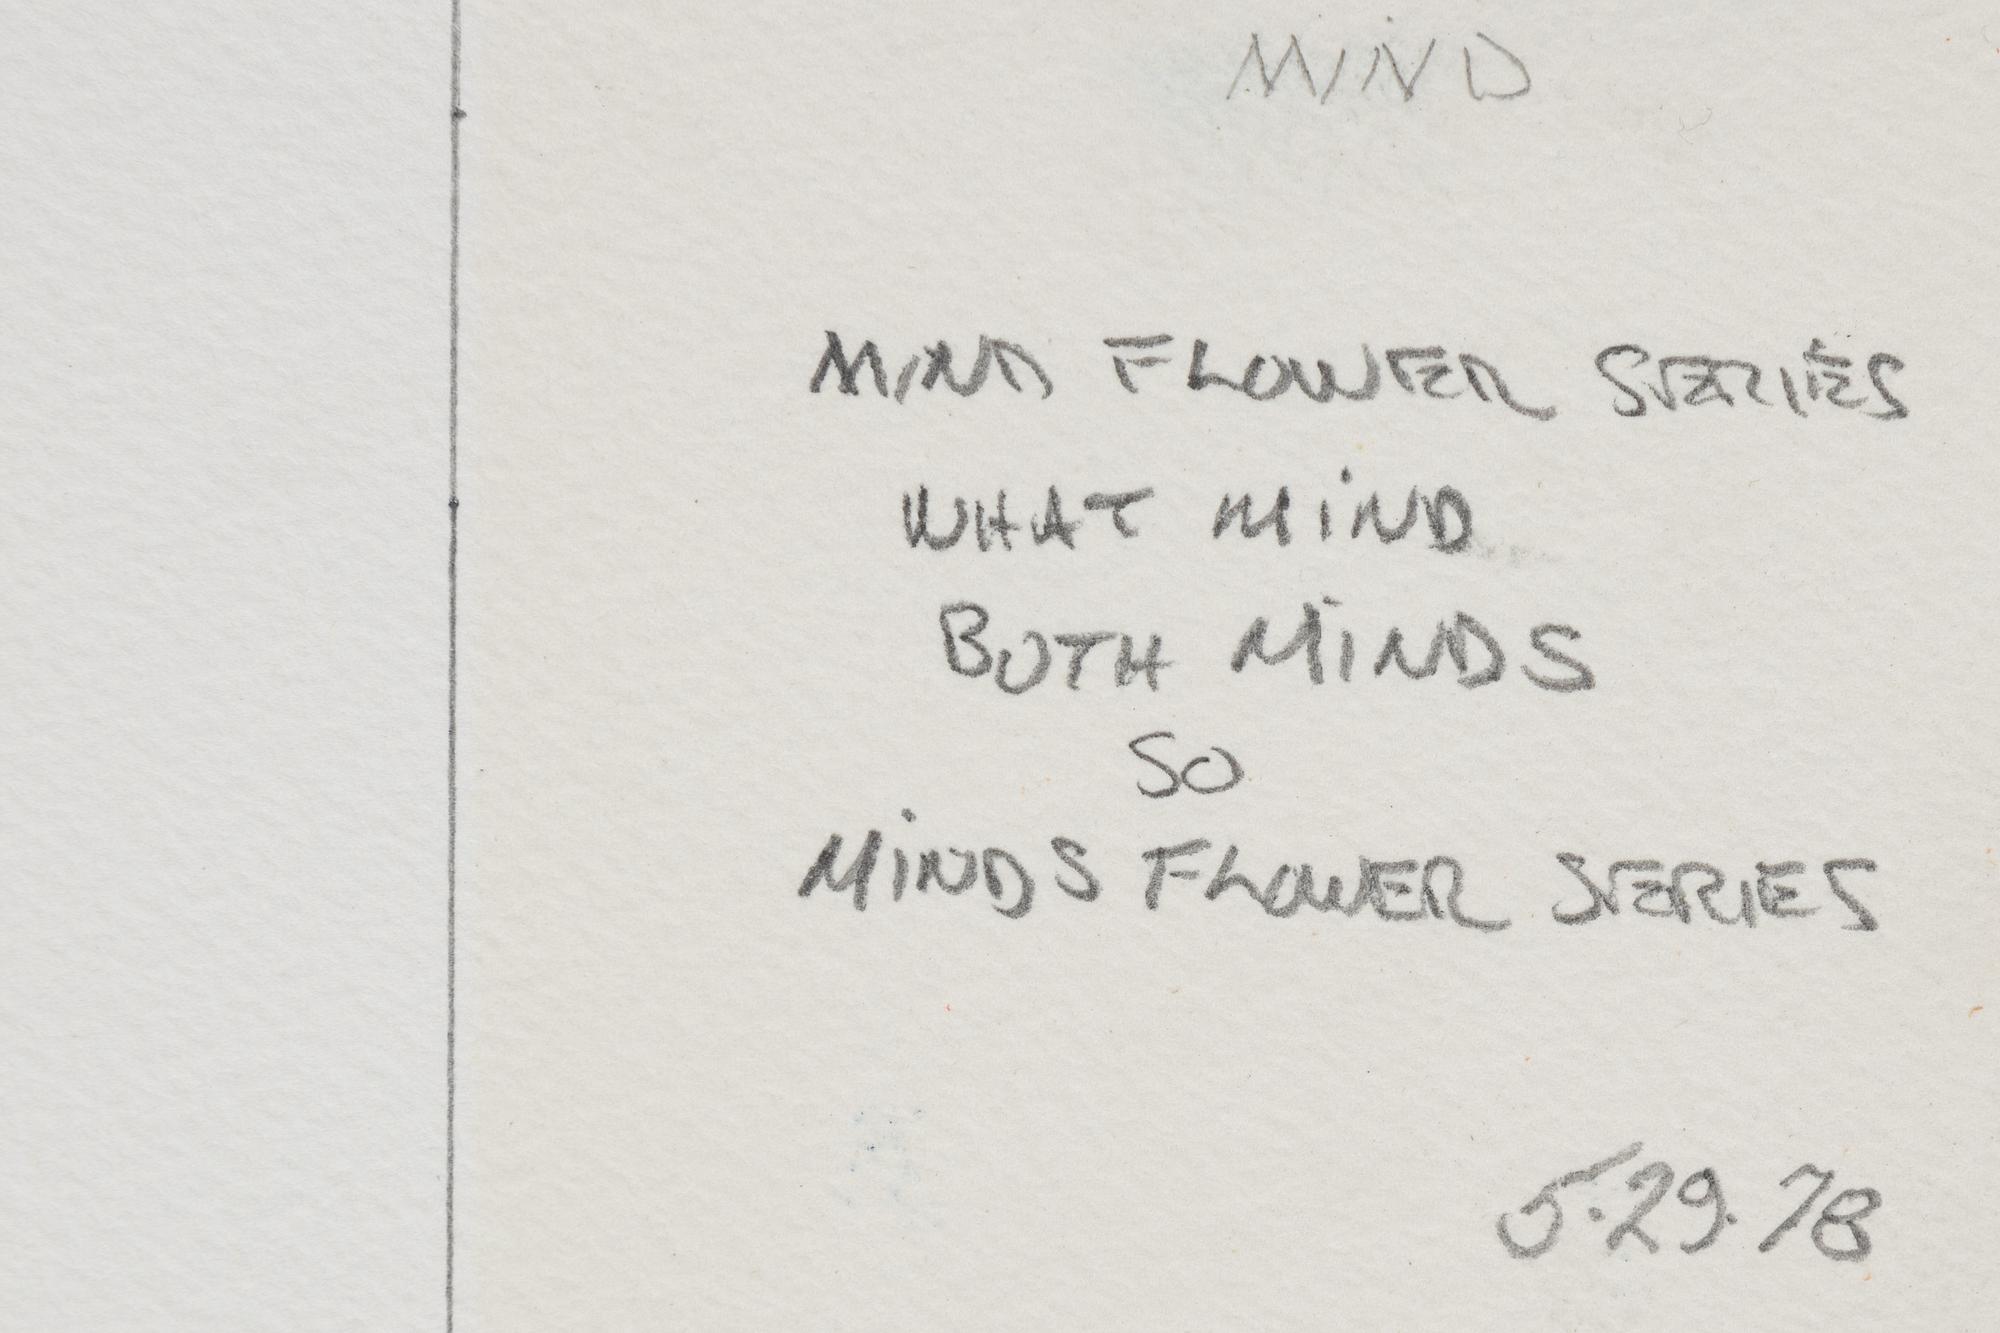 MIND
MIND FLOWER SERIES
WHAT MIND
BOTH MINDS
SO
MINDS FLOWER SERIES
5.29.78